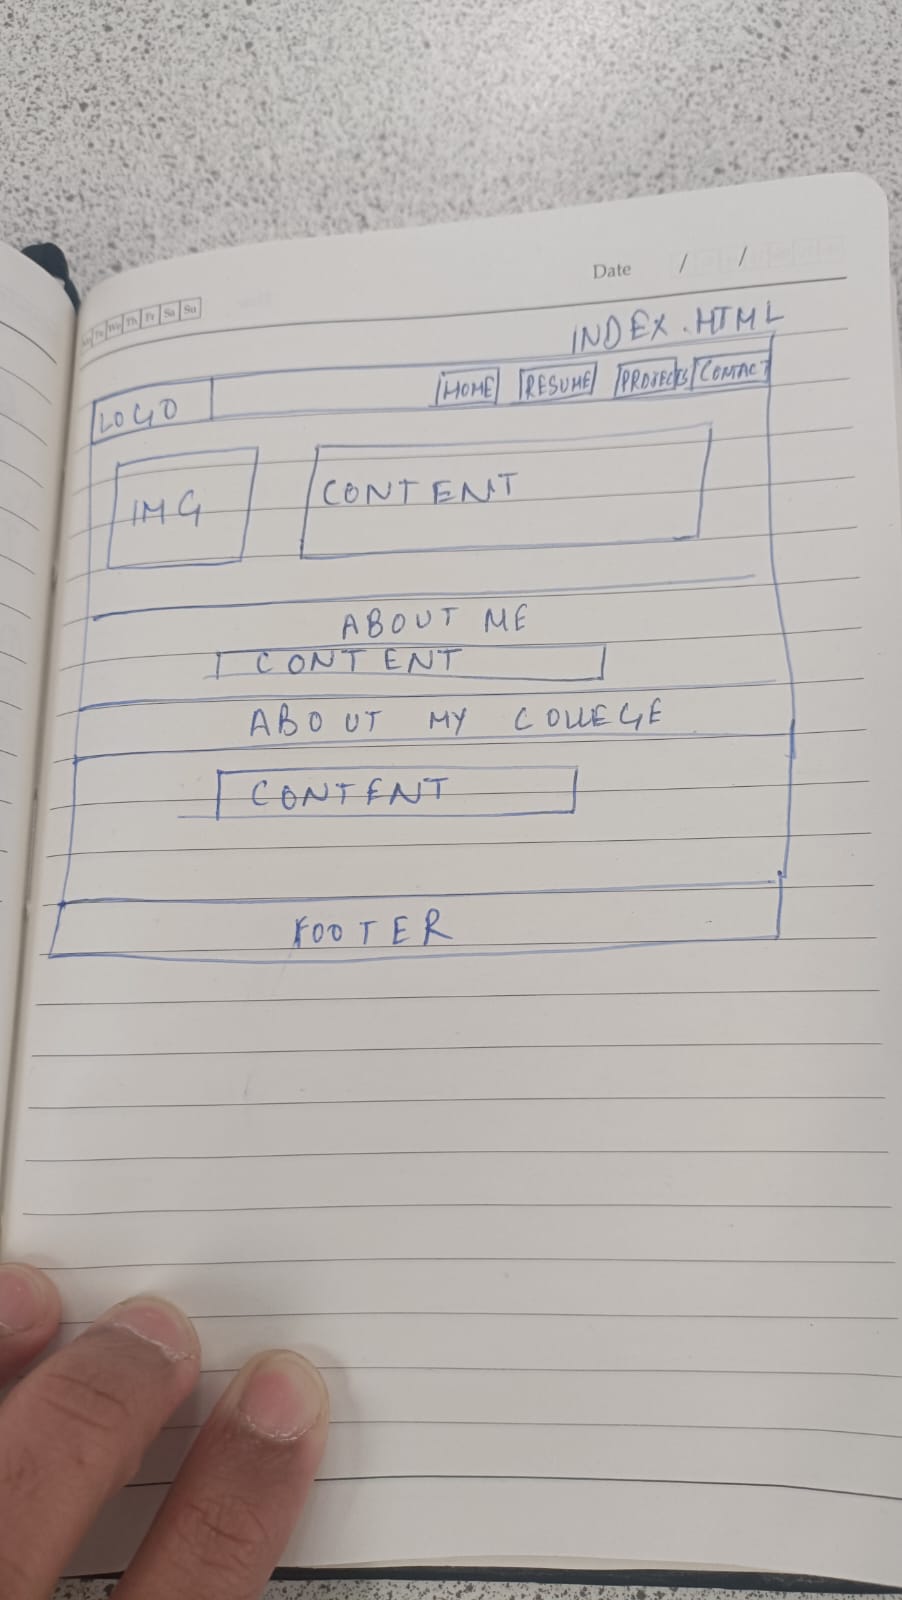 Date / /
Tu We Th Fr Sa Su
INDEX.HTML
LOGO HOME RESUME PROJECTS CONTACT
IMG CONTENT
ABOUT ME
CONTENT
ABOUT MY COLLEGE
CONTENT
FOOTER